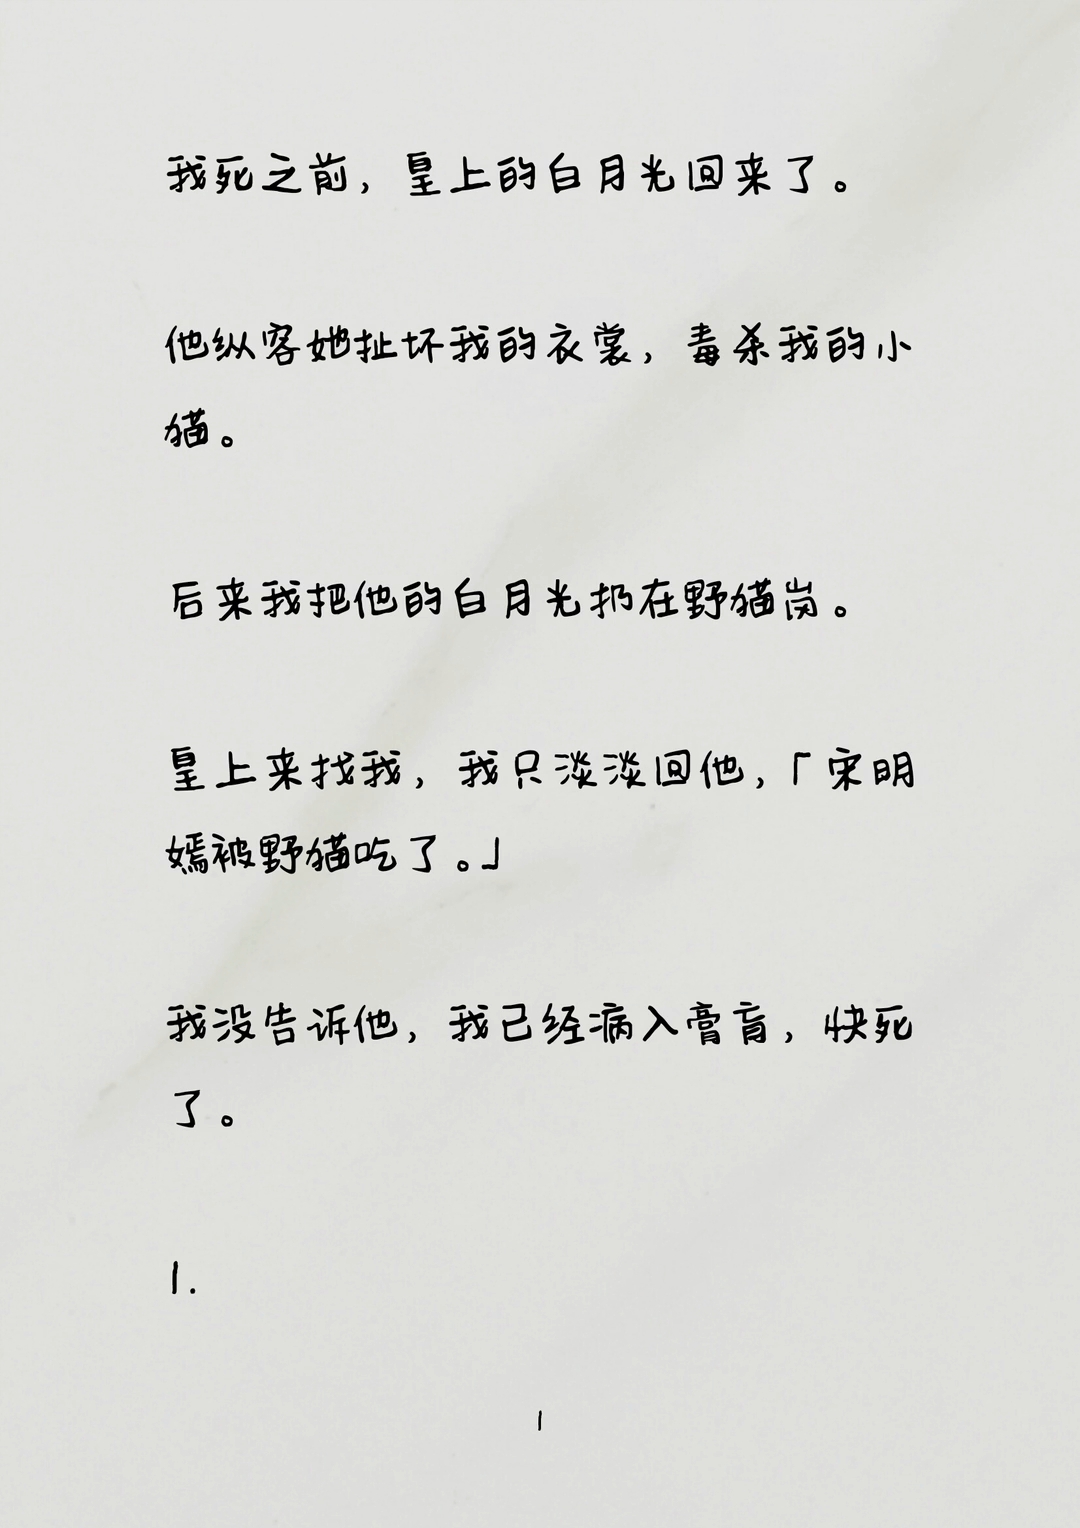 我死之前，皇上的白月光回来了。
他纵容她扯坏我的衣裳，毒杀我的小
猫。
后来我把他的白月光扔在野猫岗。
皇上来找我，我只淡淡回他，「宋明
嫣被野猫吃了。」
我没告诉他，我已经病入膏肓，快死
了。
1.
1